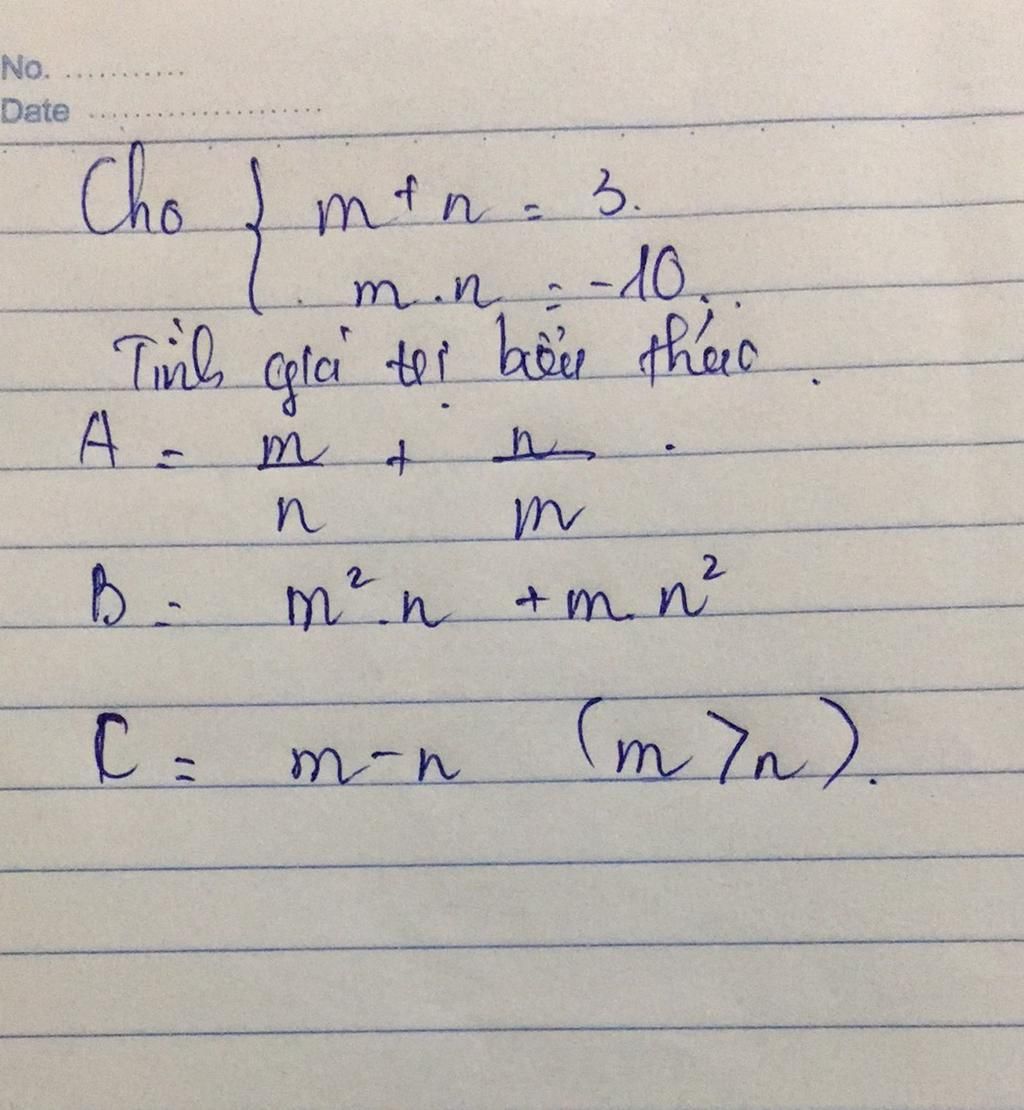 No. ...........
Date ....................
Cho { m + n = 3.
m . n = -10.
Tính giá trị biểu thức.
A = m/n + n/m.
B = m².n + m.n²
C = m - n (m > n).